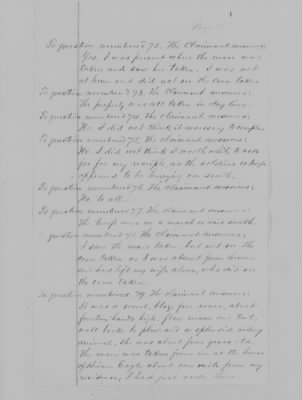 To question numbered 72. The Claimant answers;
Yes. I was present when the mare was
taken and saw her taken. I was not
at home and did not see the corn taken
To question numbered 73. The Claimant answers;
The property was all taken in day time.
To question numbered 74, the claimant answers;
No, I did not think it necessary to complain
To question numbered 75, the claimant answers;
No. I did not think it worth while to ask
for any receipts, as the soldiers
appeared to be hurrying on south.
To question numbered 76 The claimant answers;
No. to all.
To question numbered 77. The claimant answers;
The troops were on a march south.
To question numbered 78. The Claimant answers,
I saw the mare taken, but not see the
corn taken as I was about from home
and had left my wife alone, who did see
the corn taken.
To question numbered 79. The Claimant answers;
It was a sorrel, blaze face mare, about
fourteen hands high, flax mane and tail,
well broke to plow, and a splendid riding
animal. She was about four years old.
The mare was taken from me at the house
of Hiram Cagle about one mile from my
residence, I had just rode